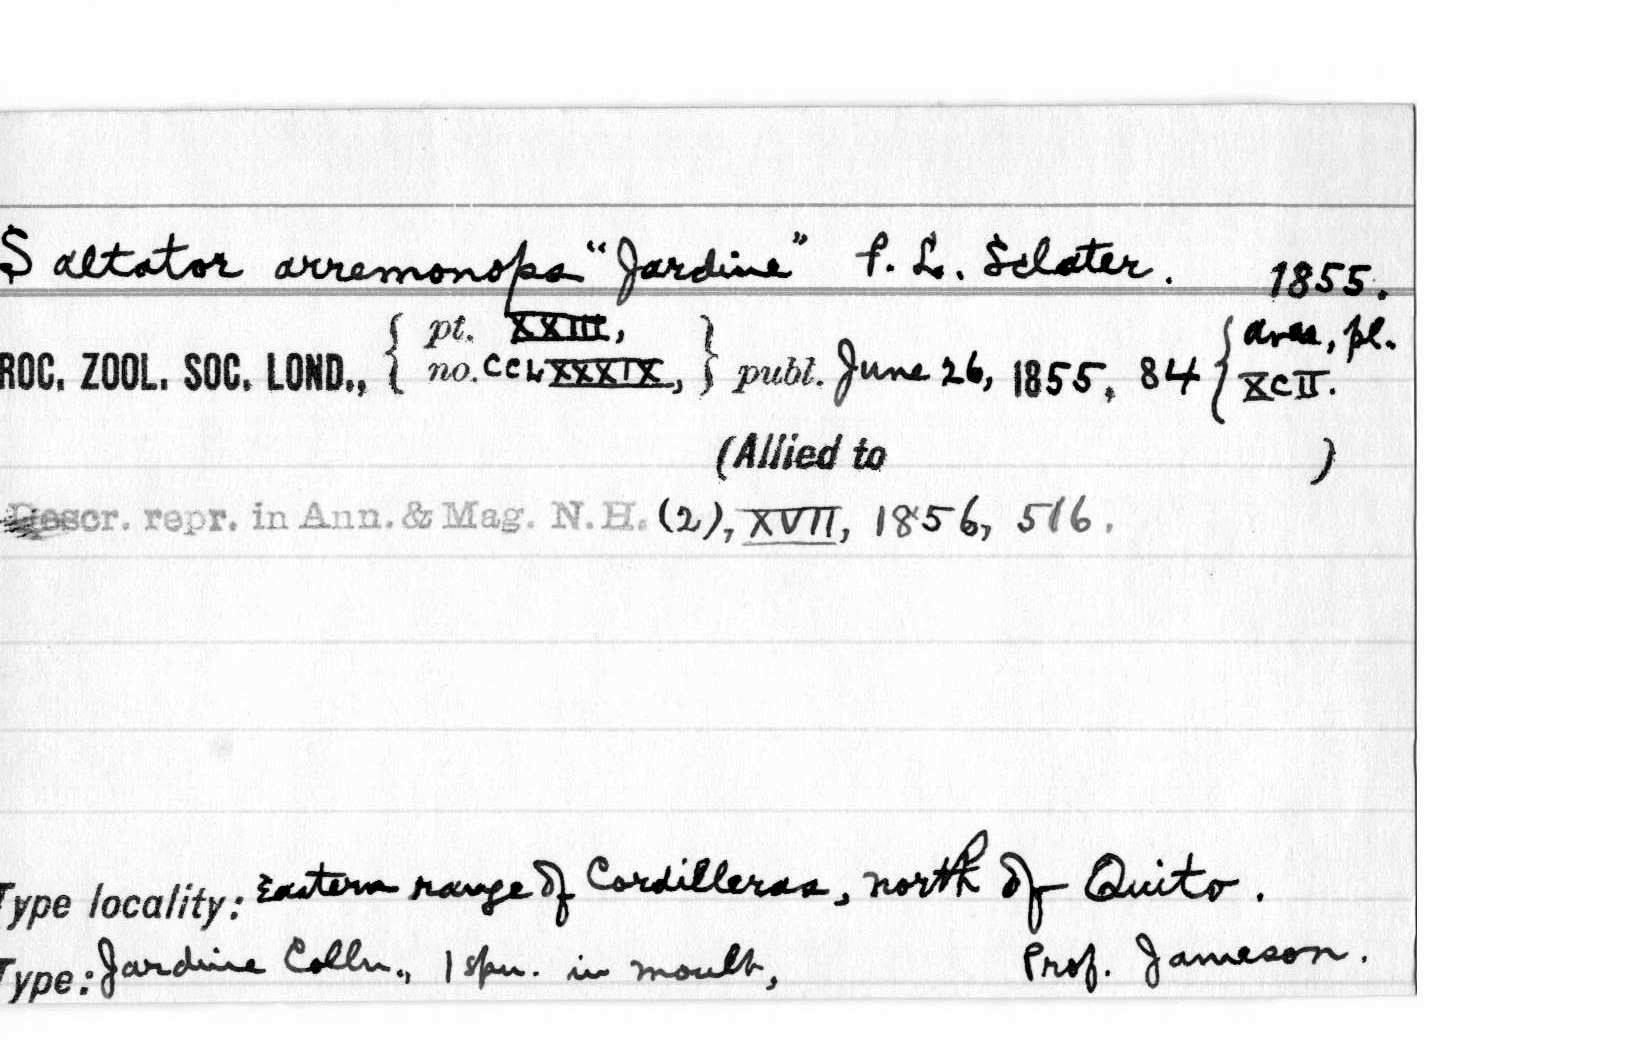 Saltator arremonops "Jardine" P. L. Sclater. 1855.
ROC. ZOOL. SOC. LOND., { pt. XXIII, no. CCLXXXIX, } publ. June 26, 1855, 84 { aves, pl. XCII.
(Allied to )
Descr. repr. in Ann. & Mag. N. H. (2), XVII, 1856, 516.
Type locality: Eastern range of Cordilleras, north of Quito.
Type: Jardine Colln., 1 spn. in moult, Prof. Jameson.